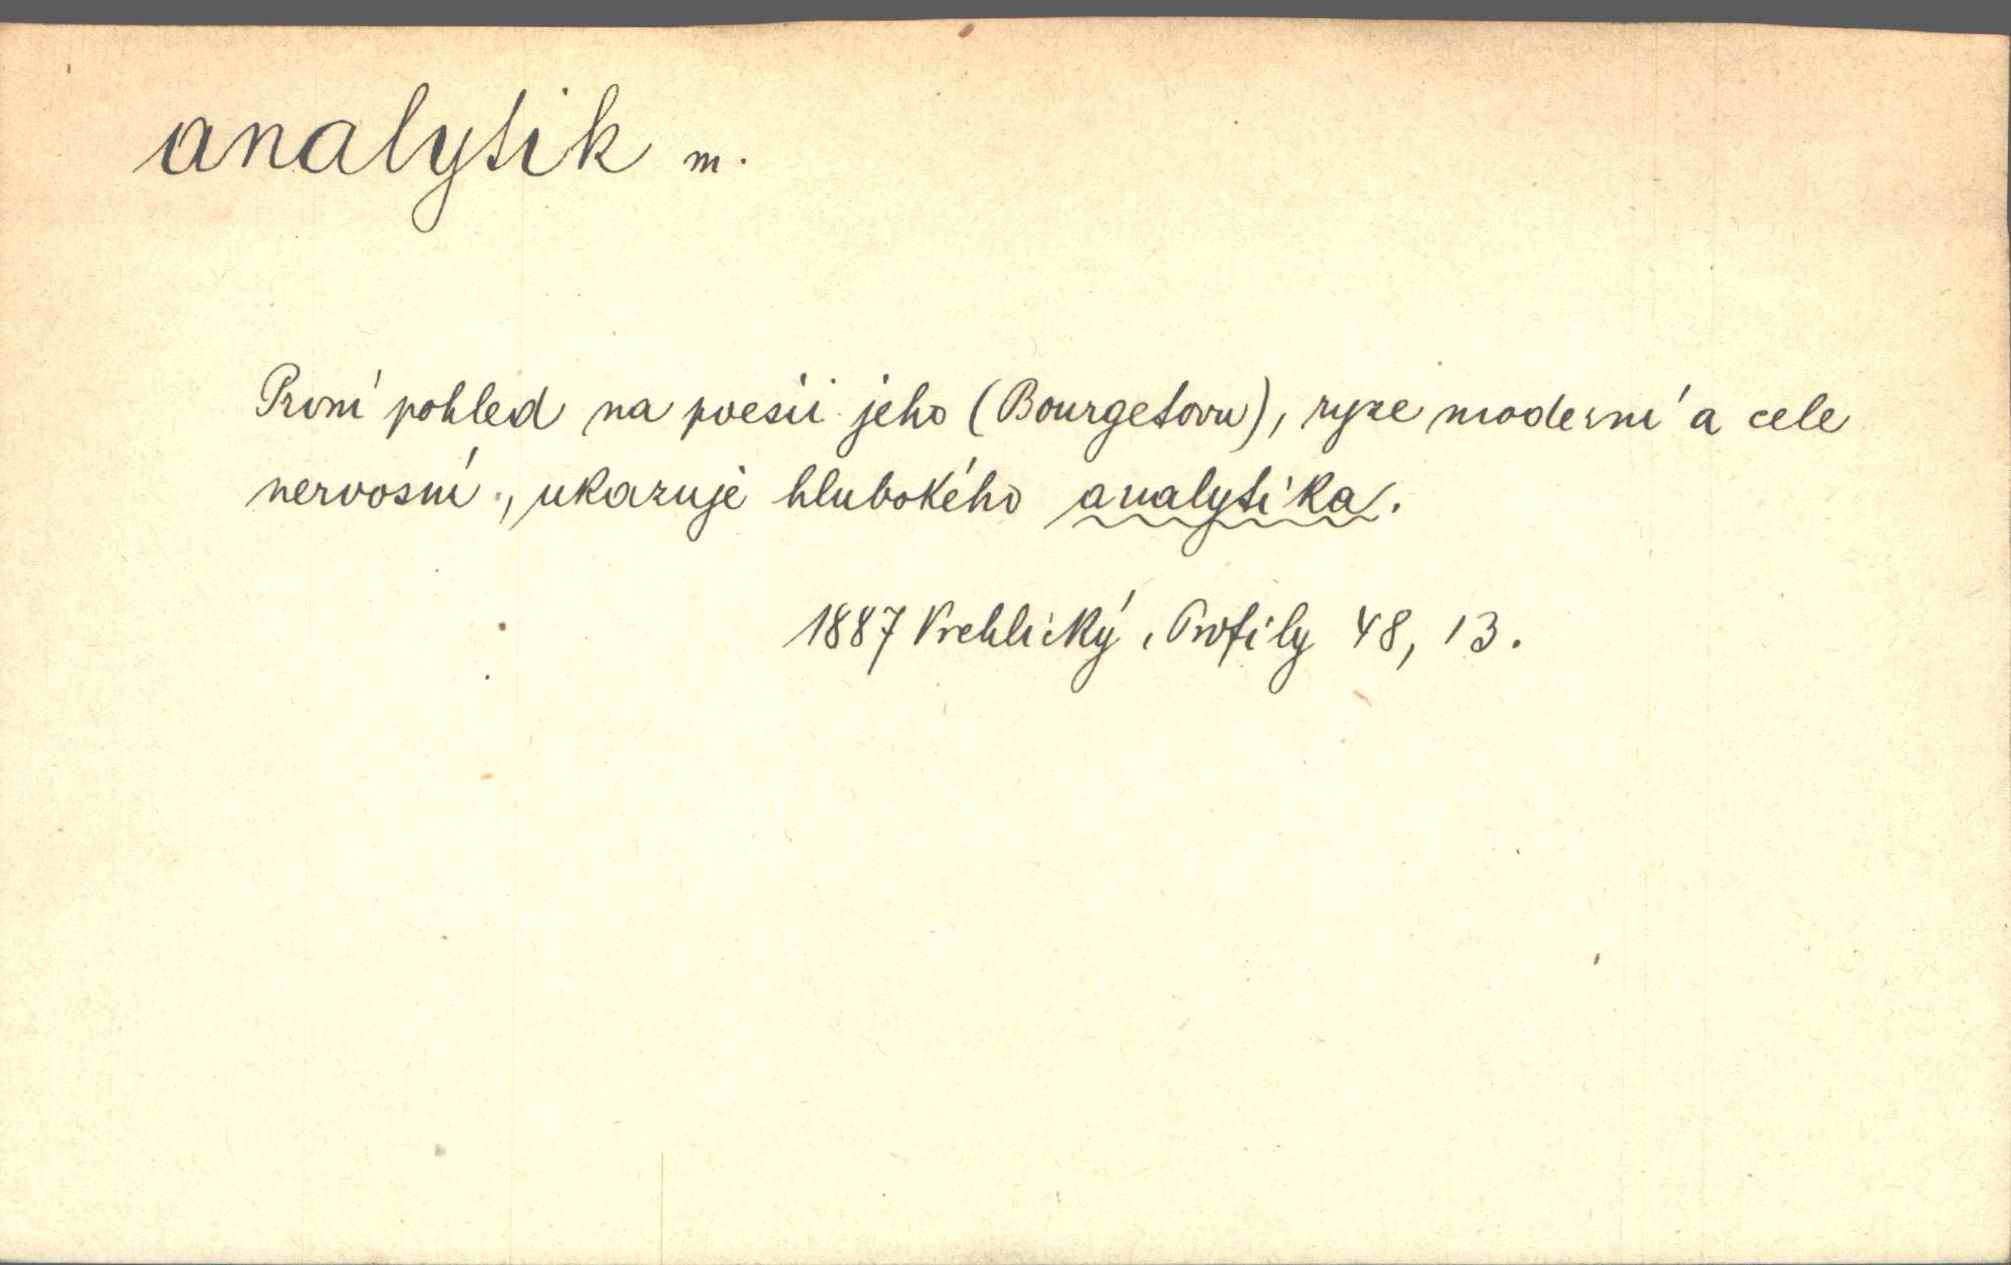 analytik m.
První pohled na poesii jeho (Bourgetovu), ryze moderní a cele
nervosní, ukazuje hlubokého analytika.
1887 Vrchlický, Profily 48, 13.